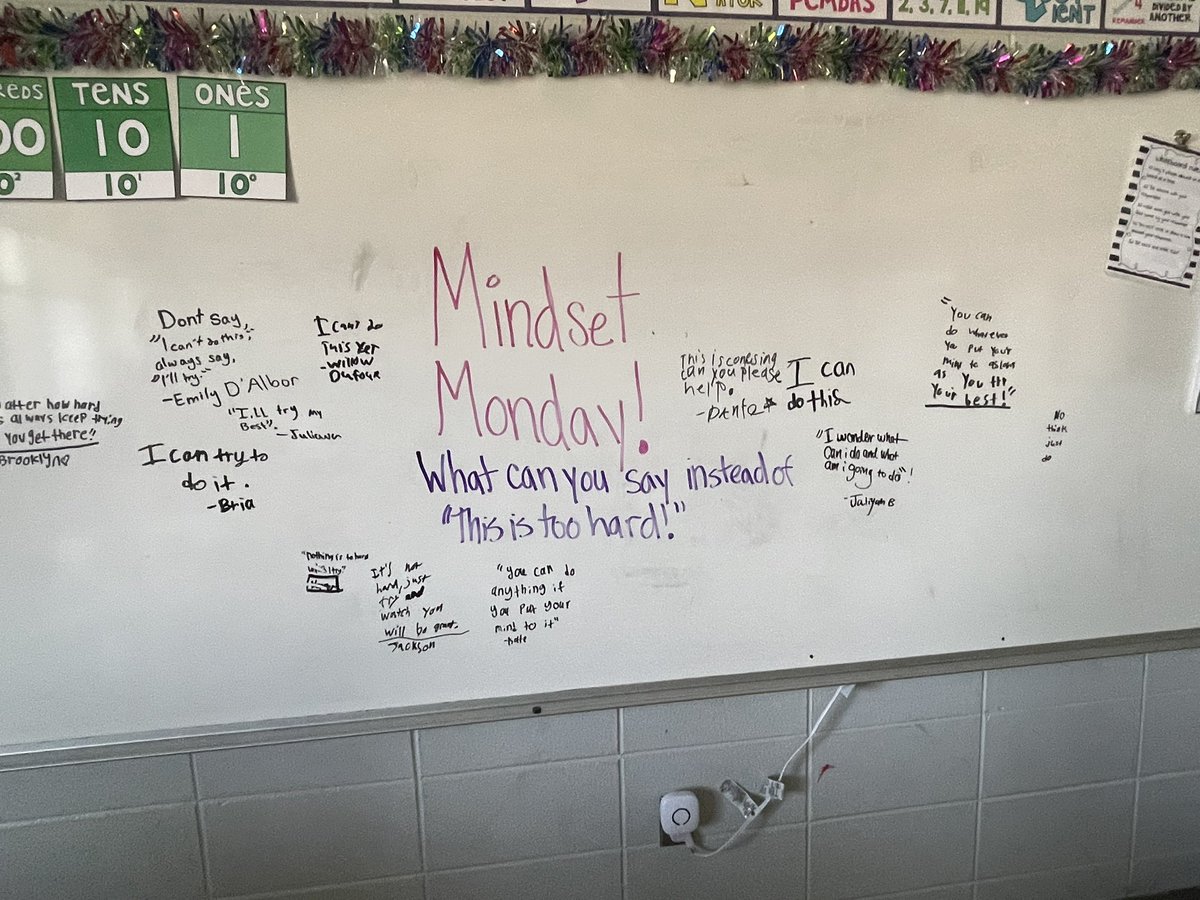 PEMDAS
2, 3, 7, 11, 19
DIVIDED BY
ANOTHER.
REMAINDER
TENS
10
10¹
ONES
1
10⁰
Mindset
Monday!
What can you say instead of
"This is too hard!"
Dont say,
"I can't do this",
always say,
"I'll try."
-Emily D'Albor
I can't do
This Yet
-Willow
Dufour
"I,LL try my
Best".
-Juliana
atter how hard
always keep trying
You get there"
Brooklyn
I can try to
do it.
-Bria
"nothing is to hard
It's not
hard, just
try and
watch you
will be great.
JACKSON
"you can do
anything if
you put your
mind to it"
This is confusing
can you please
help.
-DANTE
I can
do this
"I wonder what
Can i do and what
am i going to do"!
-Jaliyah B
"You can
do whatever
Put your
to
as You try
Your best!"
No
think
just
do